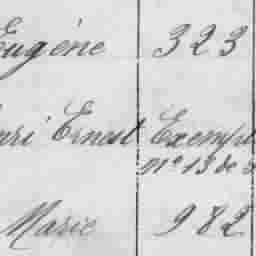 Eugéne 323
Henri Ernest Exempt
nº 13 de
Marie 982